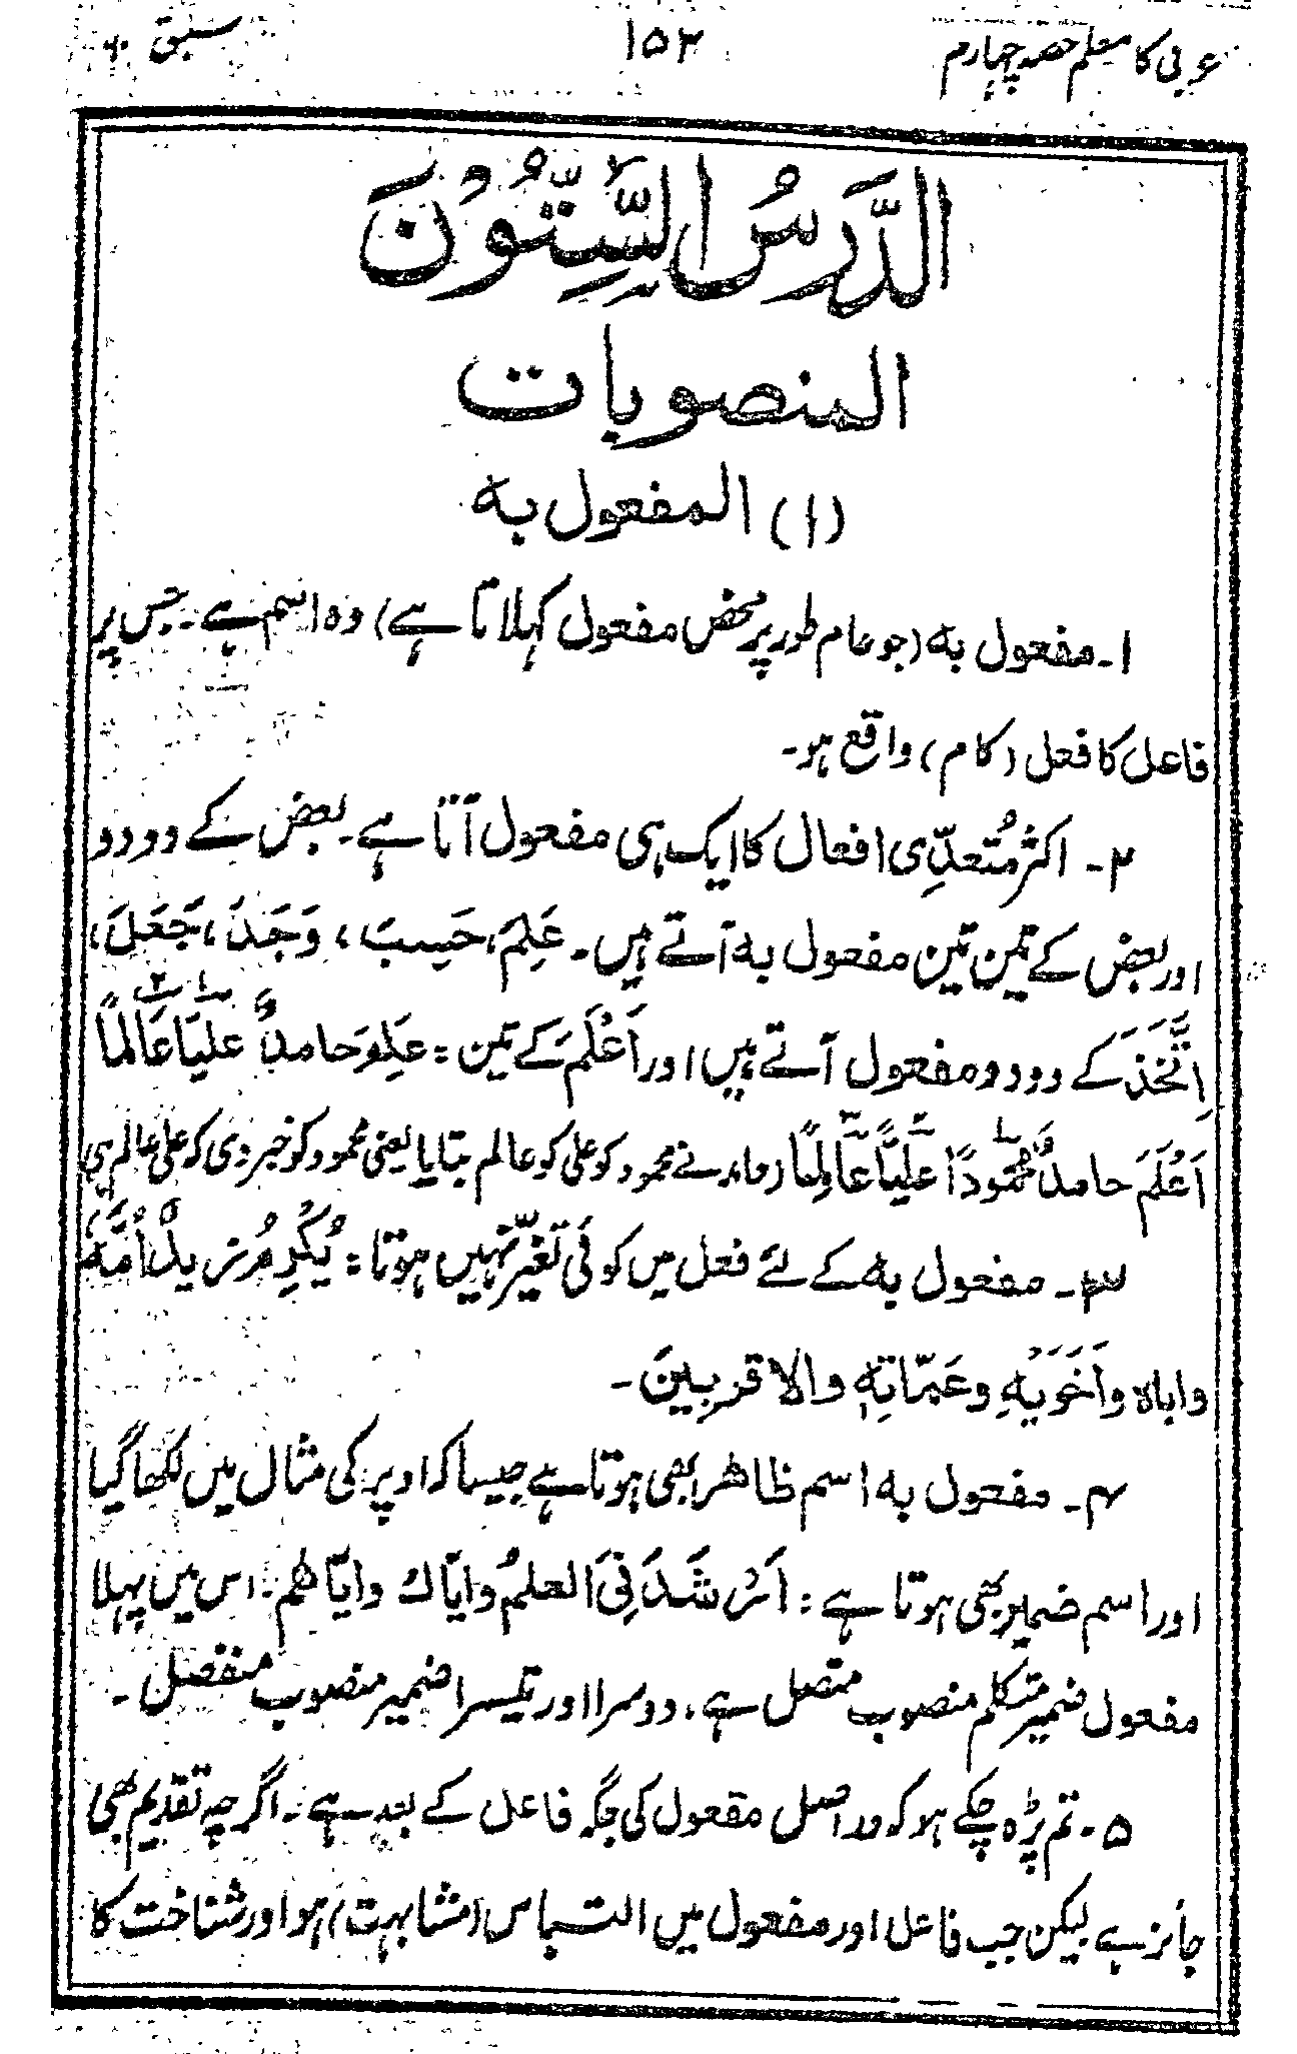 عربی کا معلم حصہ چہارم ۱۵۳ سبق ۶۰
الدَّرسُ السِّتُّوْنَ
المنصوبات
(۱) المفعول به
۱۔ مفعول به (جو عام طور پر محض مفعول کہلاتا ہے) وہ اسم ہے۔ جس پر
فاعل کا فعل (کام) واقع ہو۔
۲۔ اکثر مُتعدِّی افعال کا ایک ہی مفعول آتا ہے۔ بعض کے دو دو
اور بعض کے تین تین مفعول به آتے ہیں۔ عَلِمَ، حَسِبَ، وَجَدَ، جَعَلَ،
اِتَّخَذَ کے دو دو مفعول آتے ہیں اور اَعْلَمَ کے تین : عَلِمَ حامدٌ علیًا عَالمًا
اَعْلَمَ حامدٌ محمُودًا علیًّا عَالِمًا (حامد نے محمود کو علی کو عالم بتایا یعنی محمود کو خبر دی کہ علی عالم ہے
۳۔ مفعول به کے لئے فعل میں کوئی تغیّر نہیں ہوتا : یُکْرِمُ زیدٌ اُمَّهٗ
واباہ وأَخَوَیْهِ وعَمّاتِهٖ والاقربِینَ۔
۴۔ مفعول به اسم ظاھر بھی ہوتا ہے جیسا کہ اوپر کی مثال میں لکھا گیا
اور اسم ضمیر بھی ہوتا ہے : اَرْشَدَنِیَ العلمُ وایّاك وایّاھم۔ اس میں پہلا
مفعول ضمیر متکلم منصوب متصل ہے، دوسرا اور تیسرا ضمیر منصوب منفصل۔
۵۔ تم پڑہ چکے ہو کہ در اصل مفعول کی جگہ فاعل کے بعد ہے۔ اگرچہ تقدیم بھی
جائز ہے لیکن جب فاعل اور مفعول میں التباس (مشابہت) ہو اور شناخت کا